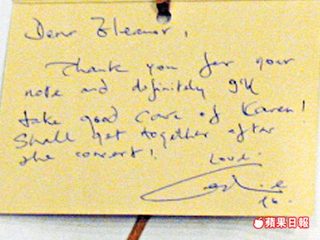 Dear Eleanor,
Thank you for your
note and definitely I'll
take good care of Karen!
Shall get together after
the concert!
Love.
蘋果日報